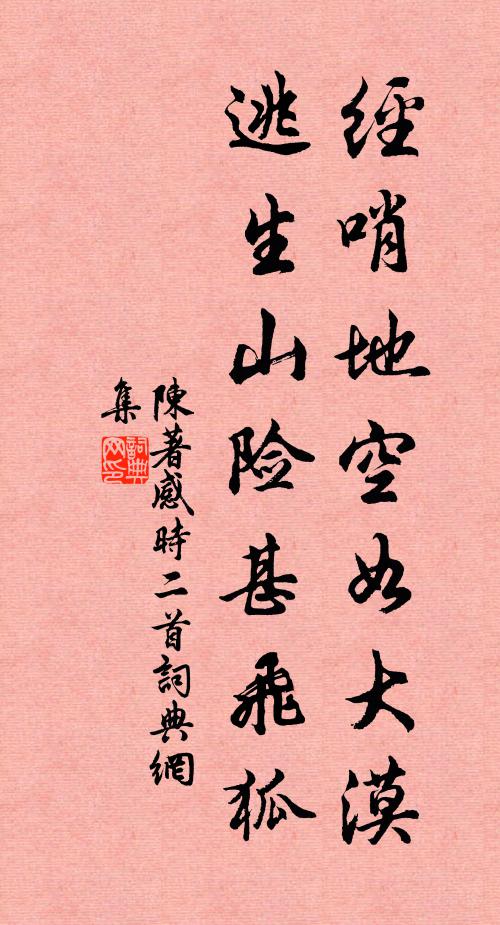 經哨地空如大漠
逃生山险甚飛狐
陳著感時二首詞典網
集
詞典網印